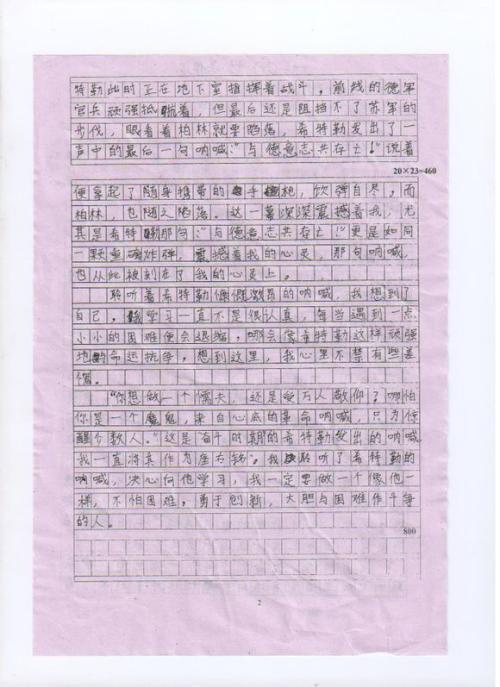 特勤此时正在地下室指挥着战斗。前线的德军
官兵顽强抵抗着，但最后还是阻挡不了苏军的
步伐，眼看着柏林就要陷落，希特勒发出了一
声中的最后一句呐喊:“与德意志共存亡!”说着
20×23=460
便拿起了随身携带的手枪，饮弹自尽，而
柏林，也随之陷落。这一幕深深震撼着我，尤
其是希特勒那句:“与德意志共存亡!”更是如同
一颗重磅炸弹，震撼着我的心灵，那句呐喊，
也从此被刻在了我的心灵上。
聆听着希特勒慷慨激昂的呐喊，我想到了
自己。我学习一直不是很认真，每当遇到一点
小小的困难便会退缩，哪会像希特勒这样顽强
地的命运抗争。想到这里，我心里不禁有些羞
愧。
“你想做一个懦夫，还是受万人敬仰？哪怕
你是一个魔鬼，来自心底的革命呐喊，只为惊
醒个数人。”这是奋斗时期的希特勒发出的呐喊
我一直将其作为座右铭。我聆听了希特勒的
呐喊，决心向他学习，我一定要做一个像他一
样，不怕困难，勇于创新，大胆与困难作斗争
的人。
800
2